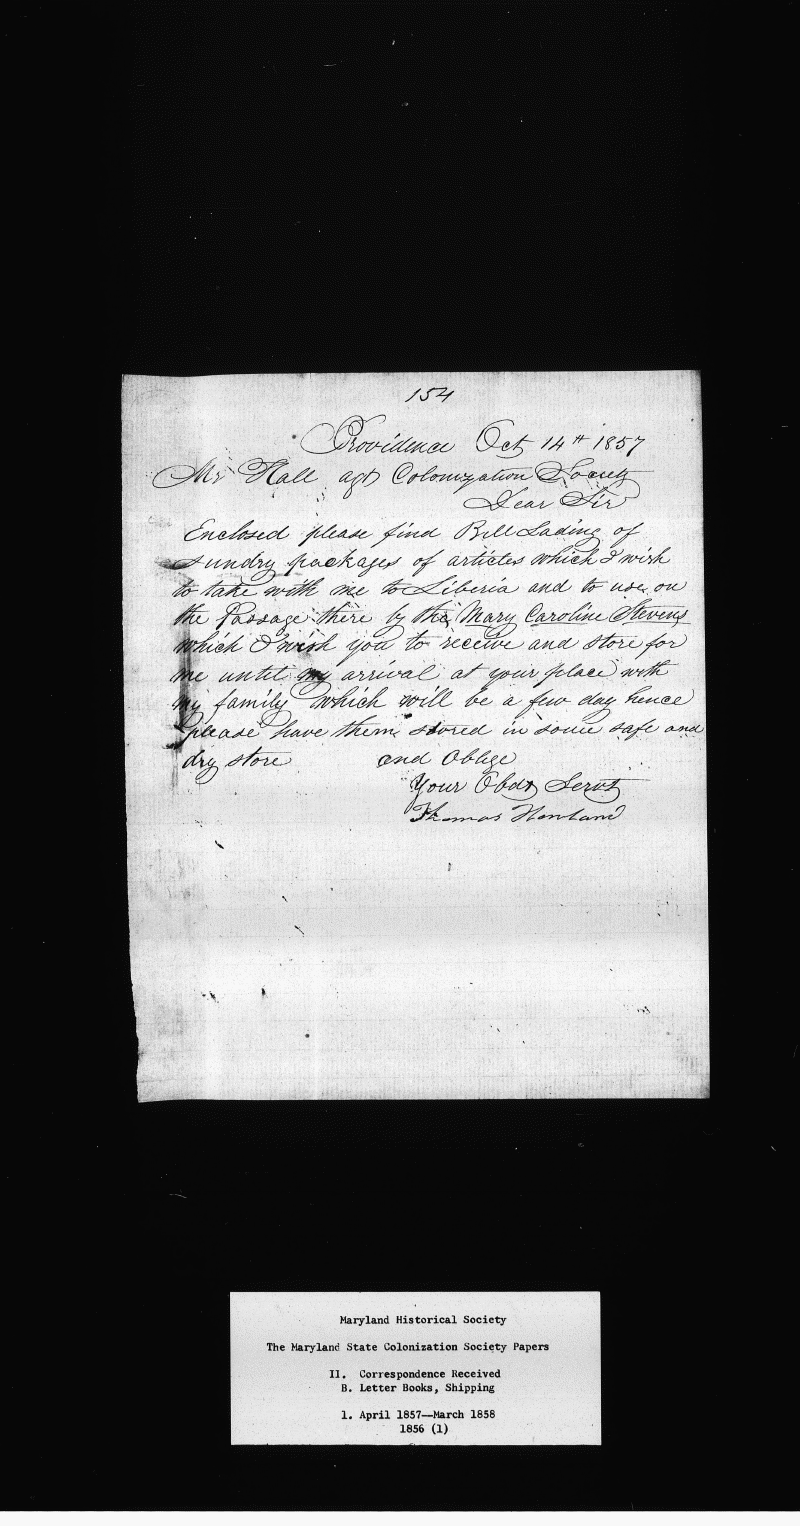 154
Providence Oct 14th 1857
Mr Hall agt Colonization Society
Dear Sir
Enclosed please find Bill Lading of
sundry packages of articles which I wish
to take with me to Liberia and to use on
the Passage there by the Mary Caroline Stevens
which I wish you to receive and store for
me until my arrival at your place with
my family which will be a few day hence
please have them stored in some safe and
dry store and Oblige
Your Obdt Servt
Thomas Howland
Maryland Historical Society
The Maryland State Colonization Society Papers
II. Correspondence Received
B. Letter Books, Shipping
1. April 1857--March 1858
1856 (1)